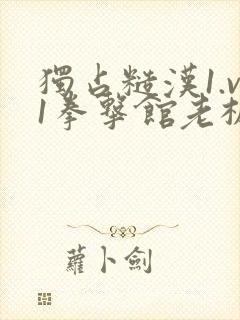 獨占糙漢1.v
1拳擊館老板
蘿卜劍